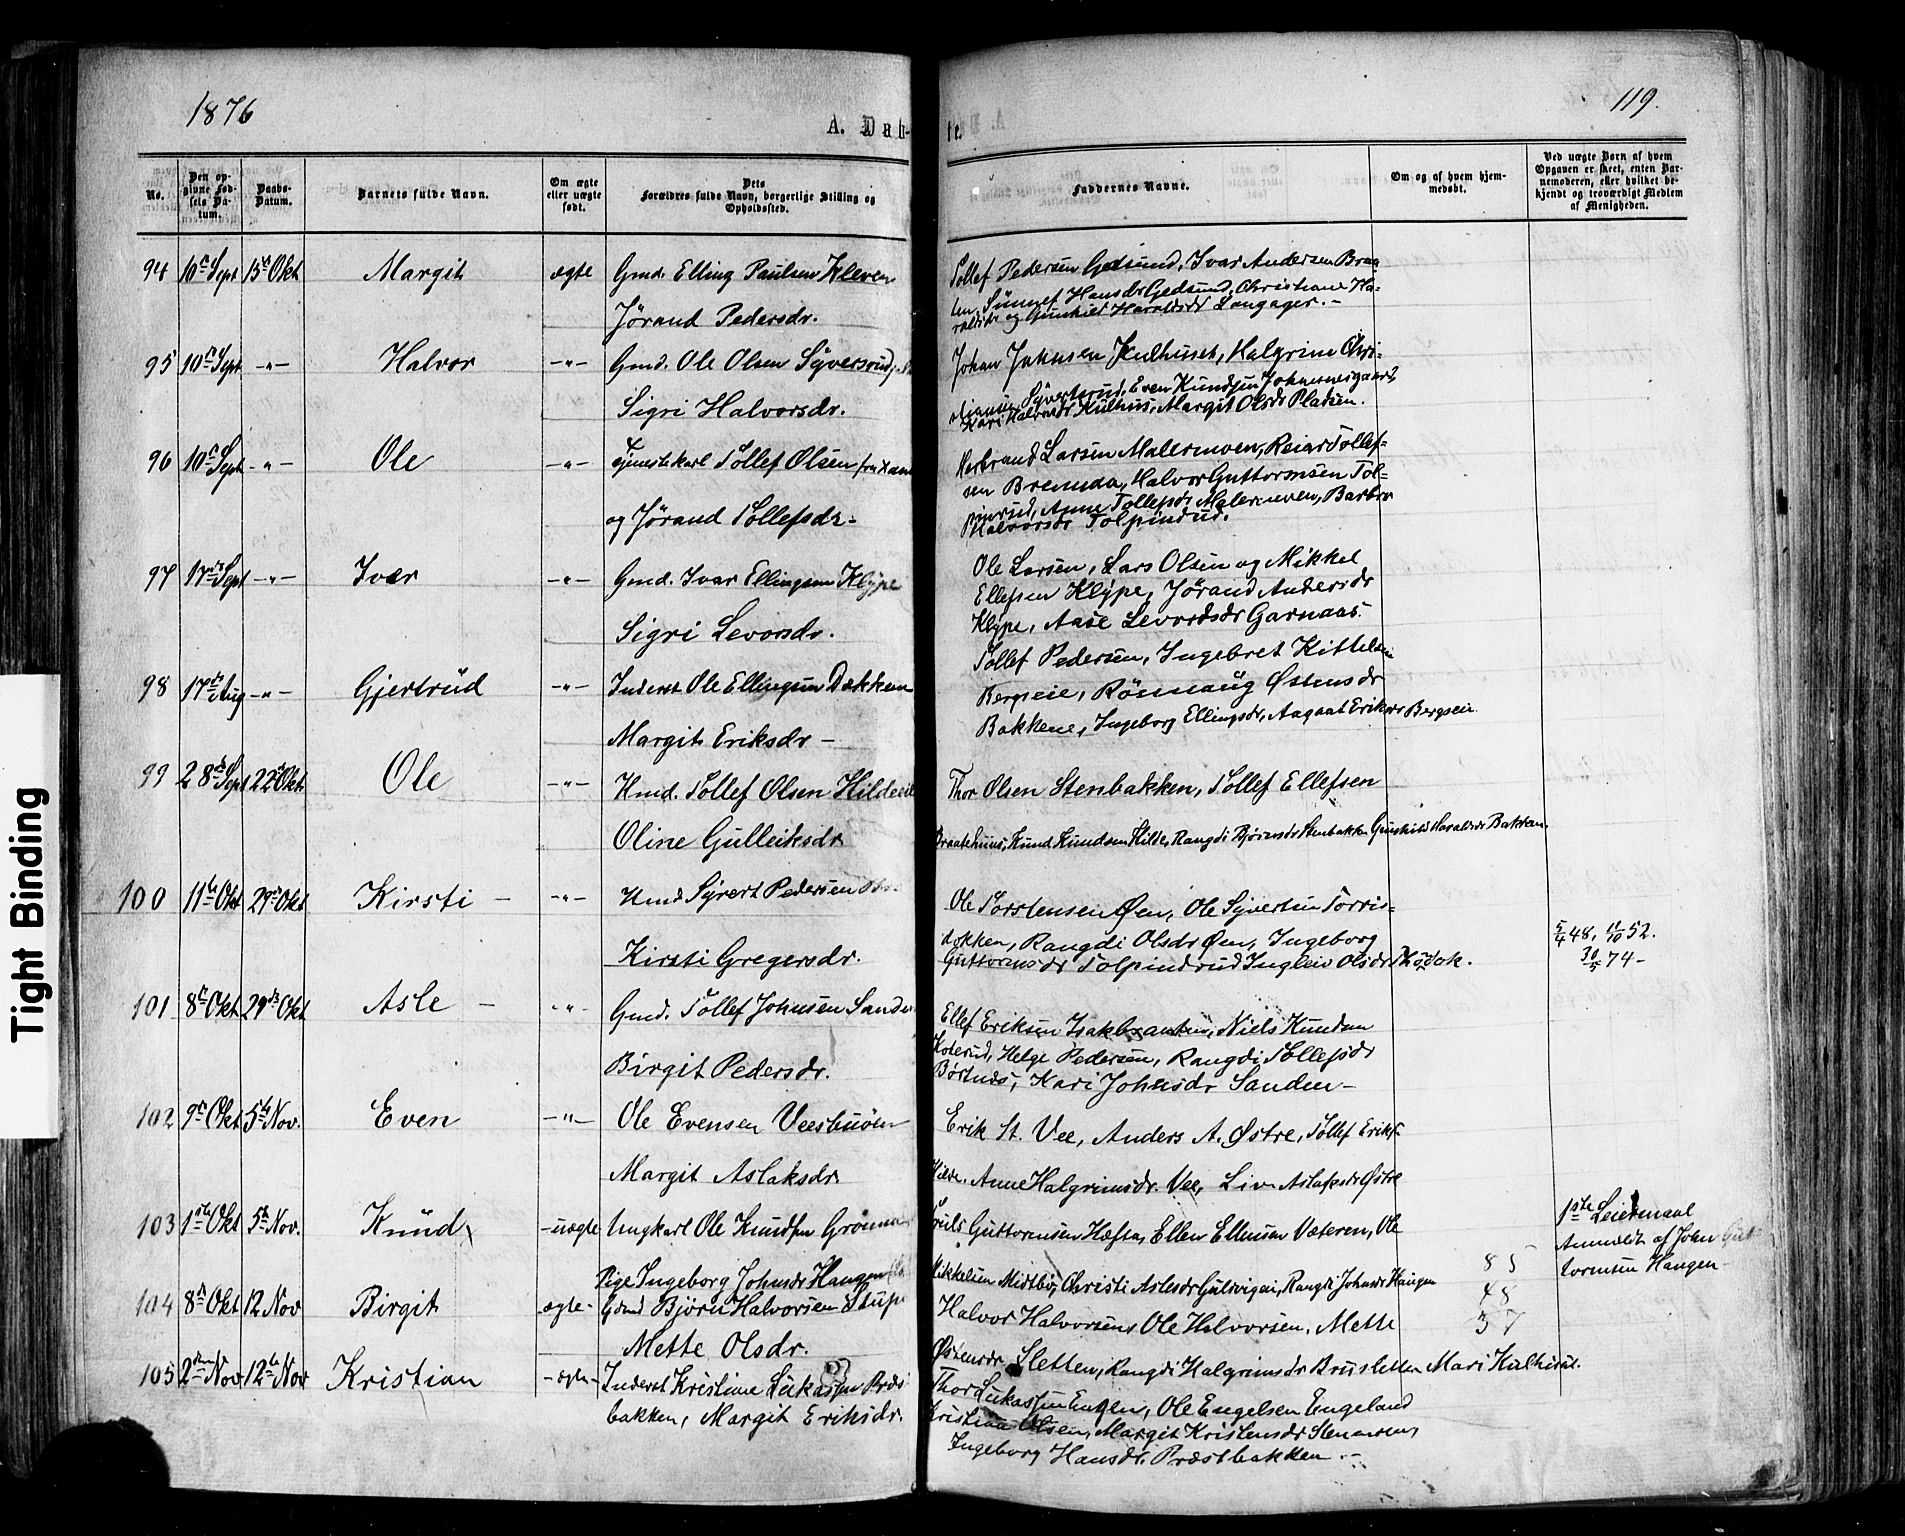 Tight Binding
1876
A. Døb-
te. A. D
119.
No.
Den op-
givne Fød-
sels Da-
tum.
Daabs-
Datum.
Barnets fulde Navn.
Om ægte
eller uægte
født.
Dets
Forældres fulde Navn, borgerlige Stilling og
Opholdssted.
Faddernes Navne.
Om og af hvem hjem-
medøbt.
Ved uægte Børn af hvem
Opgaven er skeet, enten Bar-
nemoderen, eller hvilket be-
kjendt og troværdigt Medlem
af Menigheden.
94 10de Sept 15de Okt Margit ægte Gmd. Elling Paulsen Kleven
Jørand Pedersdr.
Tollef Pedersen Gedsund, Ivar Andersen Braa-
ten, Sünnef Hansdr Gedsund, Christiane Ha-
raldsdr og Gunhild Haraldsdr Langager. -
95 10de Sept -"- Halvor -"- Gmd. Ole Olsen Syversrud,
Sigri Halvorsdr.
Johan Johnsen Kulhuset, Halgrim Chri-
stiansen Syversrud, Even Knudsen Johannesgaard,
Kari Halvorsdr Kulhus, Margit Olsdr Pladsen.
96 10de Sept -"- Ole -"- Tjenestekarl Tollef Olsen fra
og Jørand Tollefsdr-
Herbrand Larsen Malermoen, Reiar Tollef-
sen Bremda, Halvor Guttormsen Tol-
pinrud, Anne Tollefsdr Malermoen, Barbro
Halvorsdr Tolpinrud.
97 17de Sept -"- Iver -"- Gmd. Ivar Ellingsen Klype
Sigri Levorsdr.
Ole Larsen, Lars Olsen og Mikkel
Ellefsen Klype, Jørand Andersdr
Klype, Aase Levordsdr Garnaas.
98 17de Aug -"- Gjertrüd -"- Inderst Ole Ellingsen Dokken
Margit Eriksdr -
Tollef Pedersen, Ingebret Kittelsen
Bergseie, Rönnaug Østensdr
Bakkene, Ingeborg Ellingsdr, Aagaat Eriksdr Bergseie
99 28de Sept 22de Okt Ole -"- Hmd. Tollef Olsen Hilde
Oline Gulleiksdr
Thor Olsen Stenbakken, Tollef Ellefsen
Braatehuus, Knud Knudsen Hilde, Rangdi Bjørnsdr Stenbakken Gunhild Haraldsdr Bakken
100 11te Okt 29de Okt Kirsti - -"- Hmd Syvert Pedersen
Kirsti Gregersdr.
Ole Torstensen Øen, Ole Syvertsen Torris-
dokken, Rangdi Olsdr Øen, Ingeborg
Guttormsdr Tolpinrud Ingleiv Olsdr
5/4 48, 11/10 52.
30/5 74-
101 8de Okt 29de Okt Asle - -"- Gmd. Tollef Johnsen Sanden
Birgit Pedersdr.
Ellef Eriksen Isakbraaten, Niels Knudsen
Koterud, Helge Pedersen, Rangdi Tollefsdr
Børtnæs, Kari Johnsdr Sanden-
102 9de Okt 5te Nov. Even -"- Ole Evensen
Margit Aslaksdr.
Erik St. Vee, Anders A. Østre, Tollef Eriks.
Hilde. Anne Halgrimsdr. Vee, Liv Aslaksdr Østre
103 1ste Okt 5te Nov. Knüd -uægte Ungkarl Ole Knudsen
Pige Ingeborg Johnsdr Haugen
Truls Guttormsen Hæfta, Ellen Ellensen Væteren, Ole
Mikkelsen Midtbø, Christi Aslesdr Gulsvigen, Rangdi Johnsdr Haugen
85
1ste Leiermaal
Anmeldt af John Gut
tormsen Haugen -
104 8de Okt 12 Nov Birgit ægte- Gdmd Bjørn Halvorsen
Mette Olsdr.
Halvor Halvorsen, Ole Halvorsen, Mette
48
37
Østensdr Sletten, Rangdi Halgrimsdr Brusletten Mari Kulhuset.
105 2den Nov 12te Nov Kristian -ægte- Inderst Kristiane Lukassen Præst
bakken, Margit Eriksdr.
Thor Lukassen Engen, Ole Engelsen Engeland
Kristian Olsen, Margit Kristensdr
Ingeborg Hansdr. Præstbakken. -